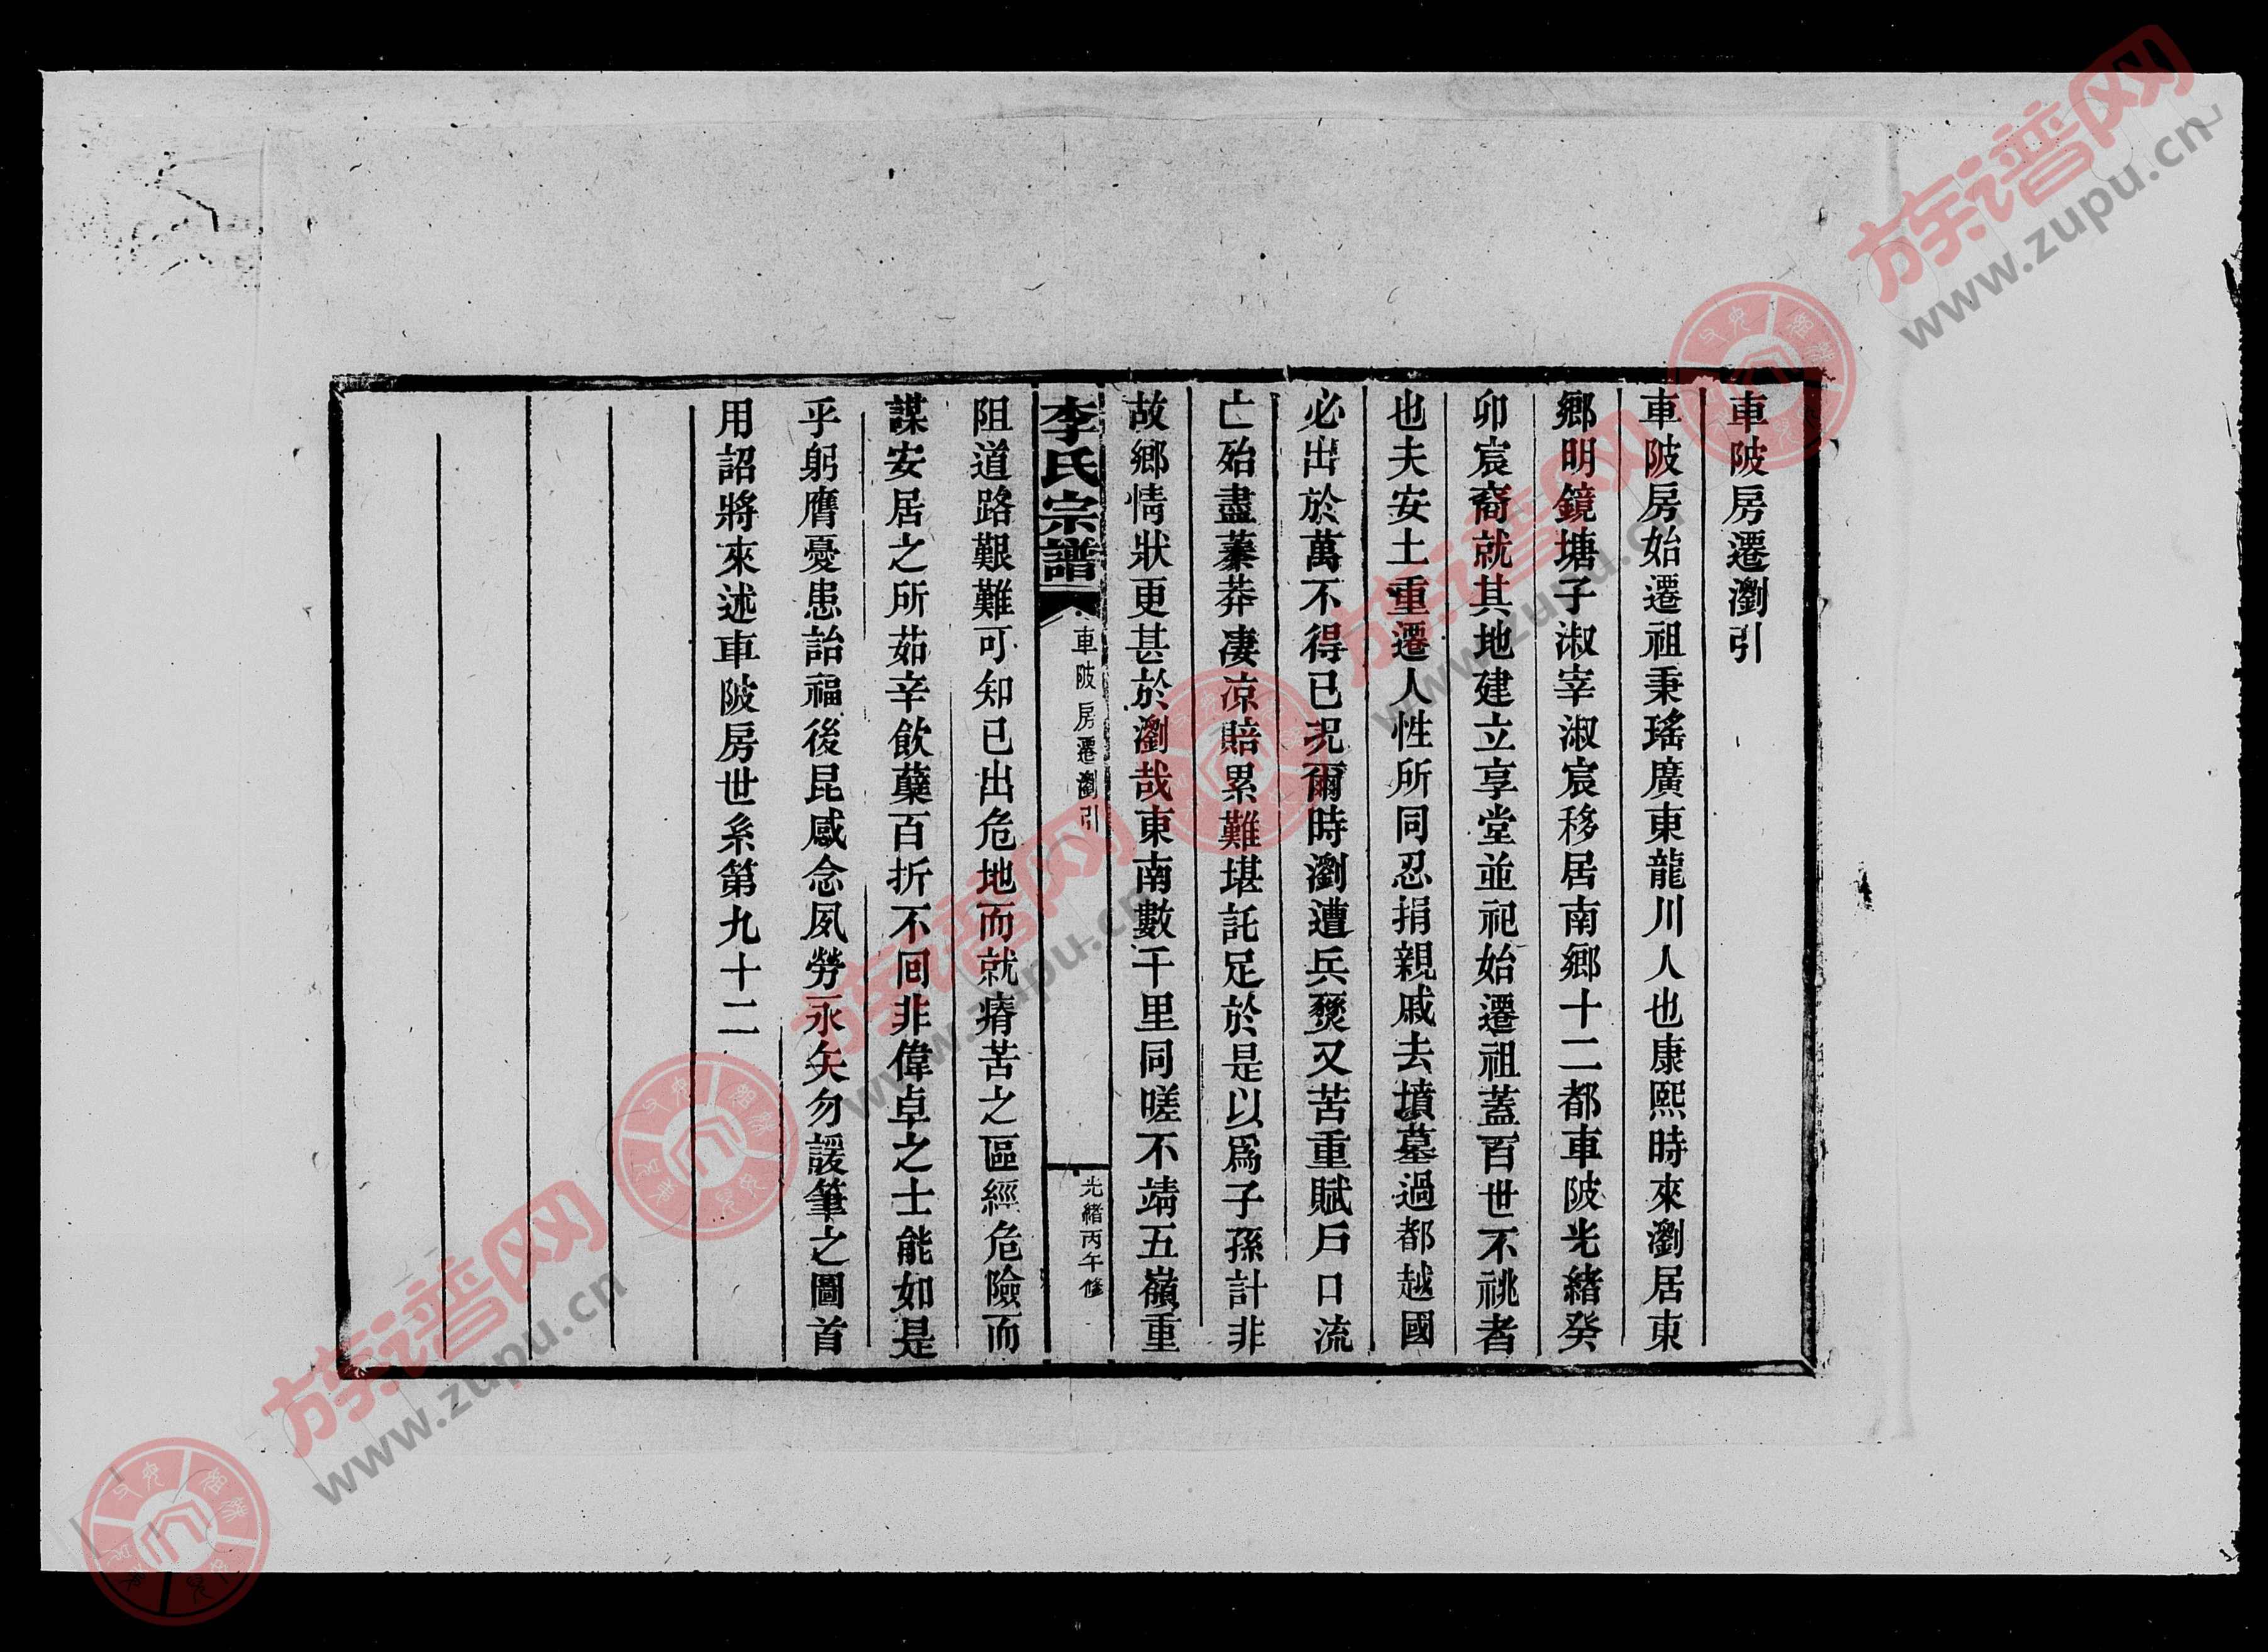 車陂房遷瀏引
車陂房始遷祖秉瑤廣東龍川人也康熙時來瀏居東
鄉明鏡塘子淑宰淑宸移居南鄉十二都車陂光緒癸
卯宸裔就其地建立享堂並祀始遷祖蓋百世不祧者
也夫安土重遷人性所同忍捐親戚去墳墓過都越國
必出於萬不得已況爾時瀏遭兵燹又苦重賦戶口流
亡殆盡蓁莽凄涼賠累難堪託足於是以爲子孫計非
故鄉情狀更甚於瀏哉東南數千里同嗟不靖五嶺重
李氏宗譜
車陂房遷瀏引
光緒丙午修
阻道路艱難可知已出危地而就瘠苦之區經危險而
謀安居之所茹辛飲蘗百折不回非偉卓之士能如是
乎躬膺憂患詒福後昆感念夙勞永矢勿諼筆之圖首
用詔將來述車陂房世系第九十二
族谱网
www.zupu.cn
族谱网
www.zupu.cn
族谱网
www.zupu.cn
族谱网
www.zupu.cn